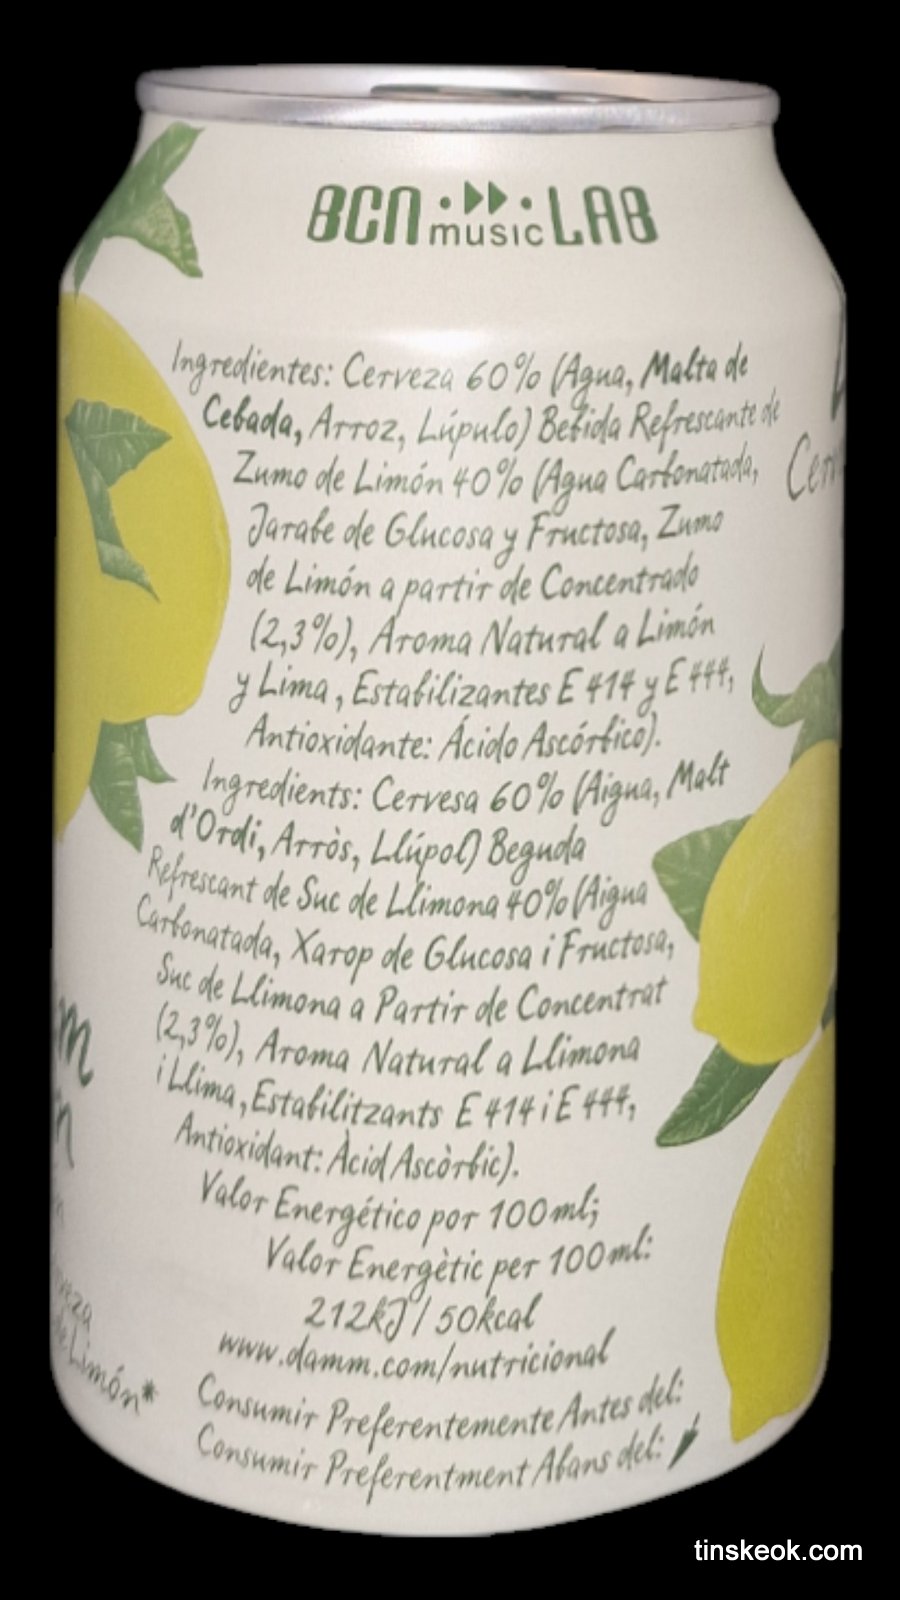 BCN music LAB
Ingredientes: Cerveza 60% (Agua, Malta de
Cebada, Arroz, Lúpulo) Bebida Refrescante de
Zumo de Limón 40% (Agua Carbonatada,
Jarabe de Glucosa y Fructosa, Zumo
de Limón a partir de Concentrado
(2,3%), Aroma Natural a Limón
y Lima, Estabilizantes E 414 y E 444,
Antioxidante: Ácido Ascórbico).
Ingredients: Cervesa 60% (Aigua, Malt
d'Ordi, Arròs, Llúpol) Beguda
Refrescant de Suc de Llimona 40% (Aigua
Carbonatada, Xarop de Glucosa i Fructosa,
Suc de Llimona a Partir de Concentrat
(2,3%), Aroma Natural a Llimona
i Llima, Estabilitzants E 414 i E 444,
Antioxidant: Àcid Ascòrbic).
Valor Energético por 100ml;
Valor Energètic per 100ml:
212kJ / 50kcal
www.damm.com/nutricional
Consumir Preferentemente Antes del:
Consumir Preferentment Abans del:
de Limón*
tinskeok.com